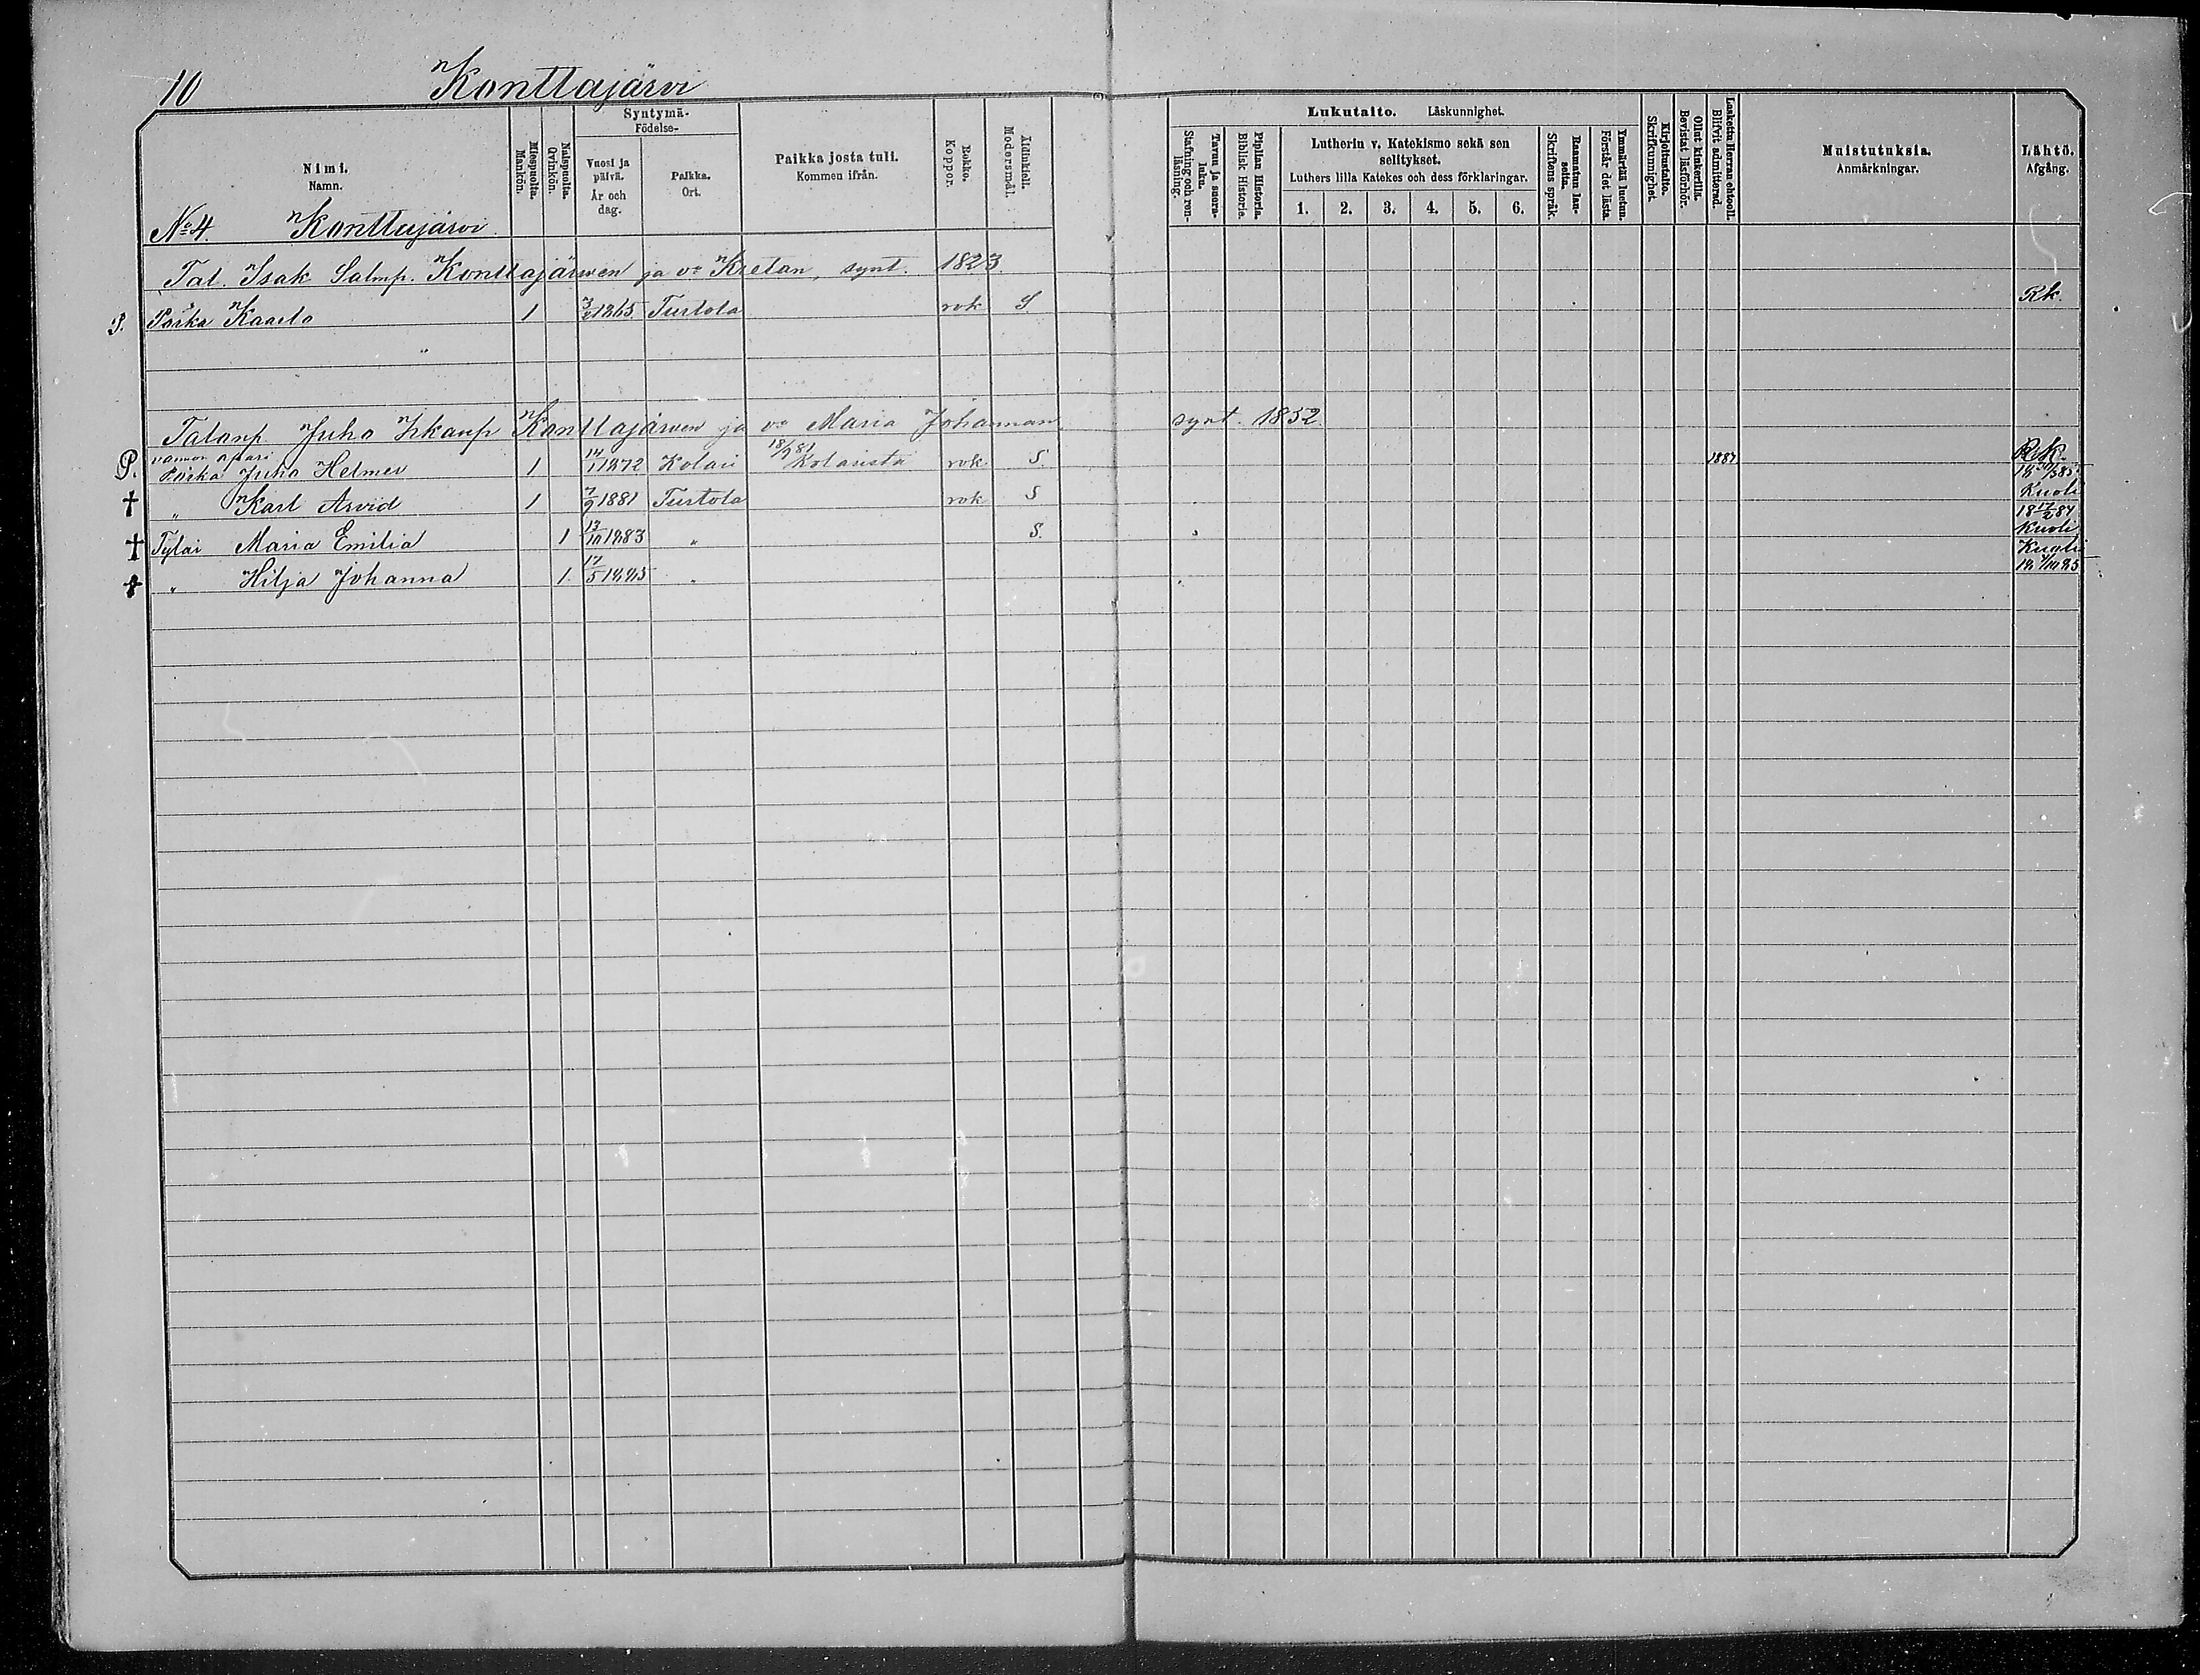 10 Konttajärvi
Nimi.
Namn.
Miespuolia.
Mankön.
Naispuolia.
Qvinkön.
Syntymä-
Födelse-
Vuosi ja päivä.
År och dag.
Paikka.
Ort.
Paikka josta tuli.
Kommen ifrån.
Rokko.
Koppor.
Äidinkieli.
Modersmål.
Lukutaito. Läskunnighet.
Tavuu ja suora-luku.
Stafning och ren-läsning.
Piplian Historia.
Biblisk Historie.
Lutherin v. Katekismo sekä sen selitykset.
Luthers lilla Katekes och dess förklaringar.
1. 2. 3. 4. 5. 6.
Raamatun lauseita.
Skriftens språk.
Ymmärtää luetun.
Förstår det lästa.
Kirjoitustaito.
Skrifkunnighet.
Ollut kinkerillä.
Bevistat läsförhör.
Laskettu Herran ehtooll.
Blifvit admitterad.
Muistutuksia.
Anmärkningar.
Lähtö.
Afgång.
No 4. Konttajärvi
Tal. Isak Salmp. Konttajärven ja vo Kretan, synt. 1823
S. Poika Kaarlo 1 1865 Turtola rok S Rk.
Talonp. Juho Iskanp Konttajärven ja vo Maria Johannan synt. 1852.
vaimon apari
P. Poika Juho Helmer 1 14/1 1872 Kolari 18/9 81 Kolarista rok S. 1887 Rk.
† " Karl Arvid 1 7/9 1881 Turtola rok S Kuoli
† Tytär Maria Emilia 1 13/10 1883 " S. 18 17/2 84 Kuoli
† " Hilja Johanna 1. 17/5 1885 " Kuoli